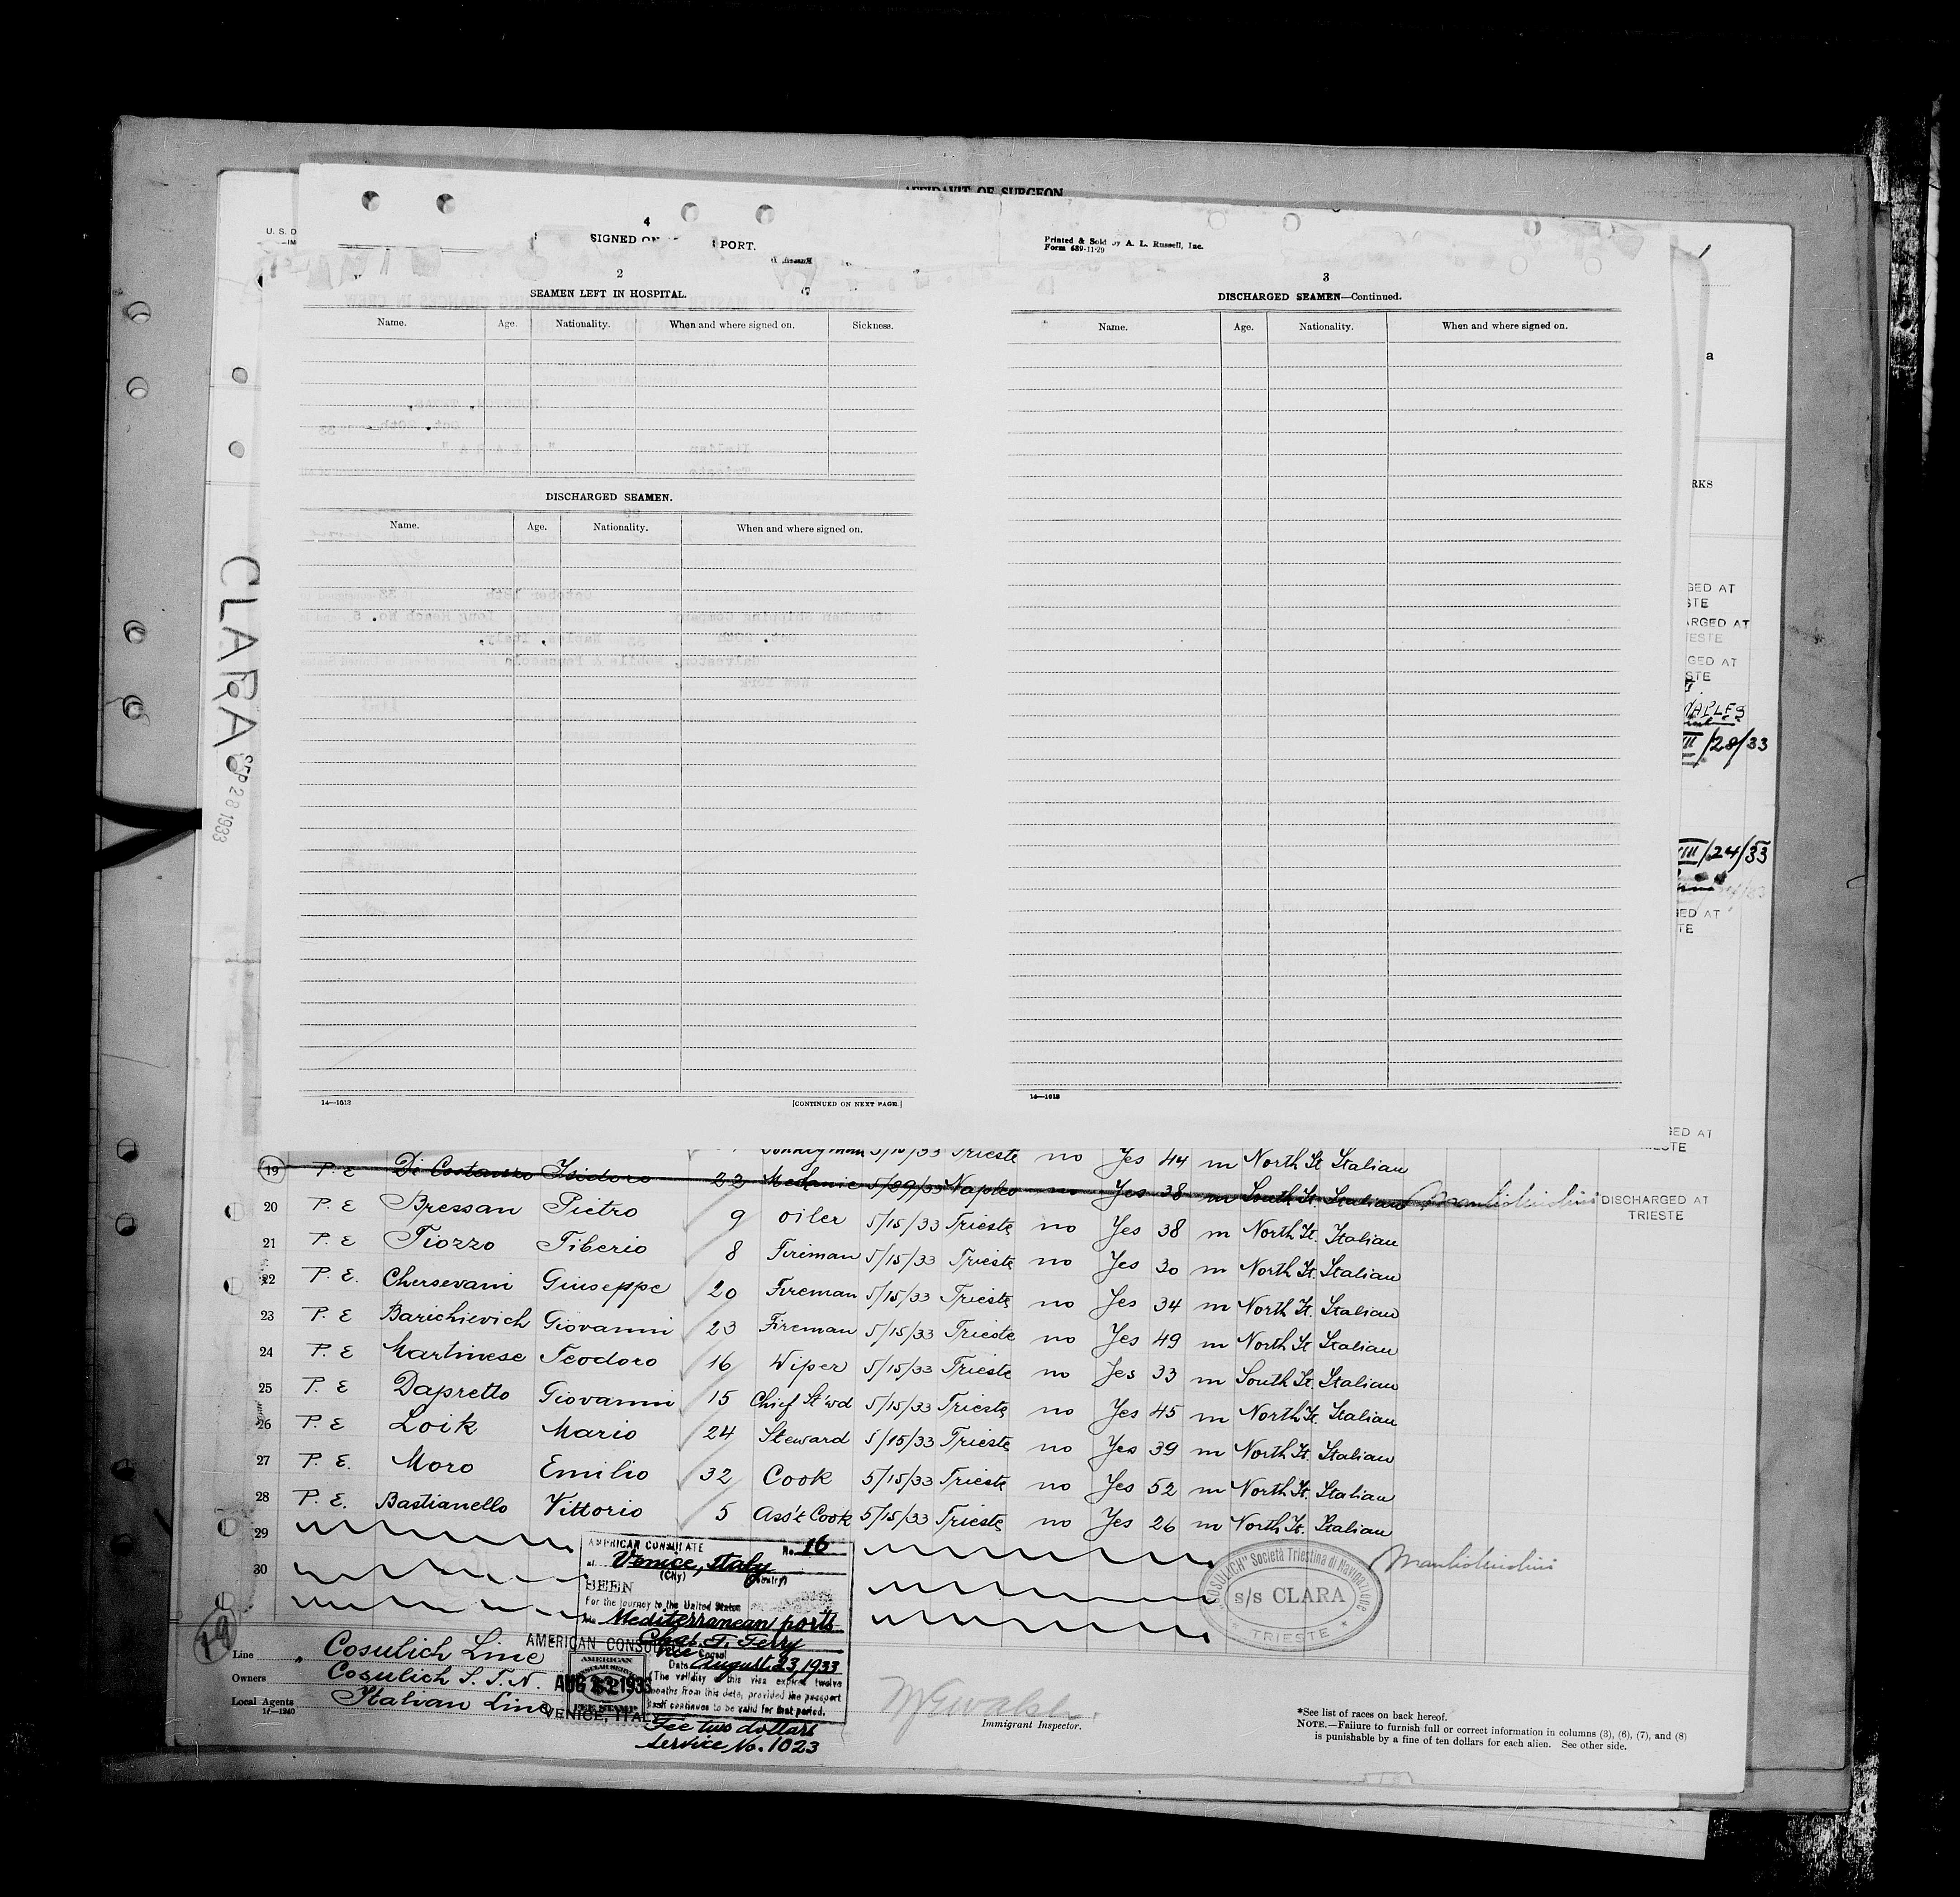 AFFIDAVIT OF SURGEON
U. S. D
4
SIGNED ON PORT.
Printed & Sold by A. L. Russell, Inc.
Form 689-11-29
2
SEAMEN LEFT IN HOSPITAL.
Name. Age. Nationality. When and where signed on. Sickness.
DISCHARGED SEAMEN.
Name. Age. Nationality. When and where signed on.
14—1613 [CONTINUED ON NEXT PAGE.]
3
DISCHARGED SEAMEN—Continued.
Name. Age. Nationality. When and where signed on.
14—1613
CLARA
SEP 28 1933
a
RKS
GED AT
STE
ARGED AT
IESTE
GED AT
STE
NAPLES
III/28/33
III/24/33
GED AT
TE
GED AT
ESTE
5/15/33 Trieste no Yes 44 m North It Italian
19 P. E Di Costanzo Isidoro 22 Mechanic 5/29/33 Naples no Yes 38 m South It. Italian DISCHARGED AT TRIESTE
20 P. E Bressan Pietro 9 oiler 5/15/33 Trieste no Yes 38 m North It. Italian
21 P. E Tiozzo Tiberio 8 Fireman 5/15/33 Trieste no Yes 30 m North It. Italian
22 P. E. Chersevani Giuseppe 20 Fireman 5/15/33 Trieste no Yes 34 m North It. Italian
23 P. E Barichievich Giovanni 23 Fireman 5/15/33 Trieste no Yes 49 m North It Italian
24 P. E Martinese Teodoro 16 Wiper 5/15/33 Trieste no Yes 33 m South It. Italian
25 P. E Dapretto Giovanni 15 Chief St'wd 5/15/33 Trieste no Yes 45 m North It. Italian
26 P. E Loik Mario 24 Steward 5/15/33 Trieste no Yes 39 m North It. Italian
27 P. E. Moro Emilio 32 Cook 5/15/33 Trieste no Yes 52 m North It. Italian
28 P. E. Bastianello Vittorio 5 Ass't Cook 5/15/33 Trieste no Yes 26 m North It. Italian
29
30
AMERICAN CONSULATE No. 16
at Venice, Italy
(City) (Country)
SEEN
For the journey to the United States
via Mediterranean ports
Chas. T. Terry
Vice Consul
Date August 23, 1933
(The validity of this visa expires twelve
months from this date, provided the passport
itself continues to be valid for that period.
Fee two dollars
Service No. 1023
AMERICAN CONSULATE
AMERICAN
CONSULAR SERVICE
FEE STAMP
VENICE, ITALY
"COSULICH" Società Triestina di Navigazione
s/s CLARA
TRIESTE
19
Line Cosulich Line
Owners Cosulich S. T. N.
Local Agents Italian Line
14—1240
Immigrant Inspector.
*See list of races on back hereof.
NOTE.—Failure to furnish full or correct information in columns (3), (6), (7), and (8)
is punishable by a fine of ten dollars for each alien. See other side.